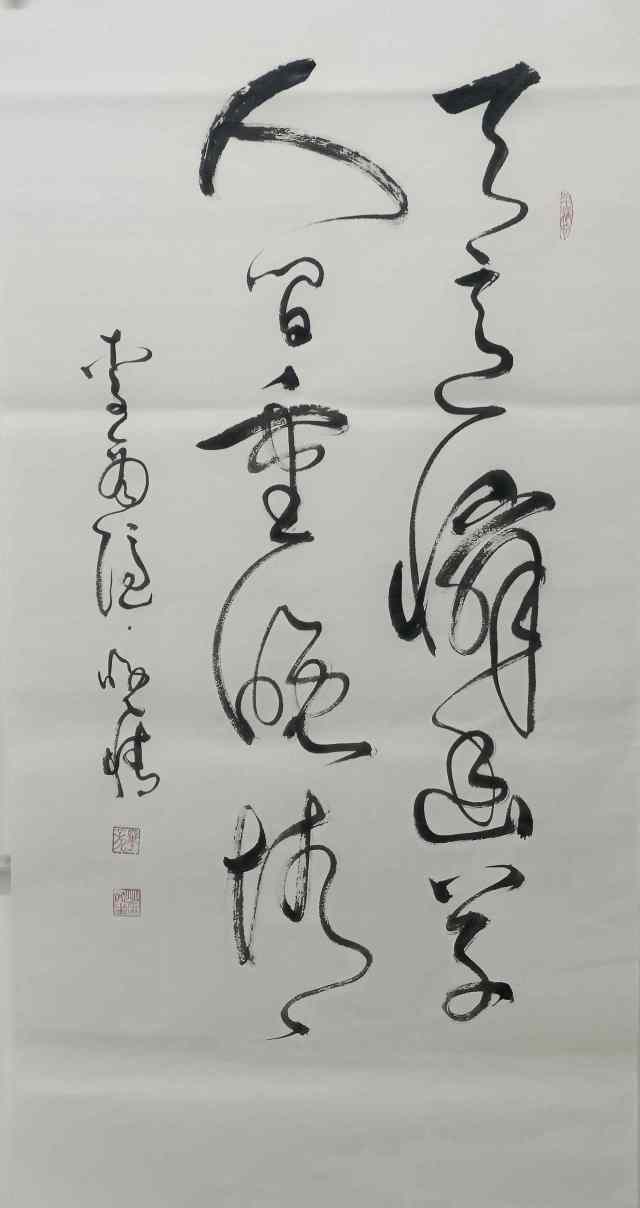 天意怜幽草
人间重晚情
李商隐·晚情